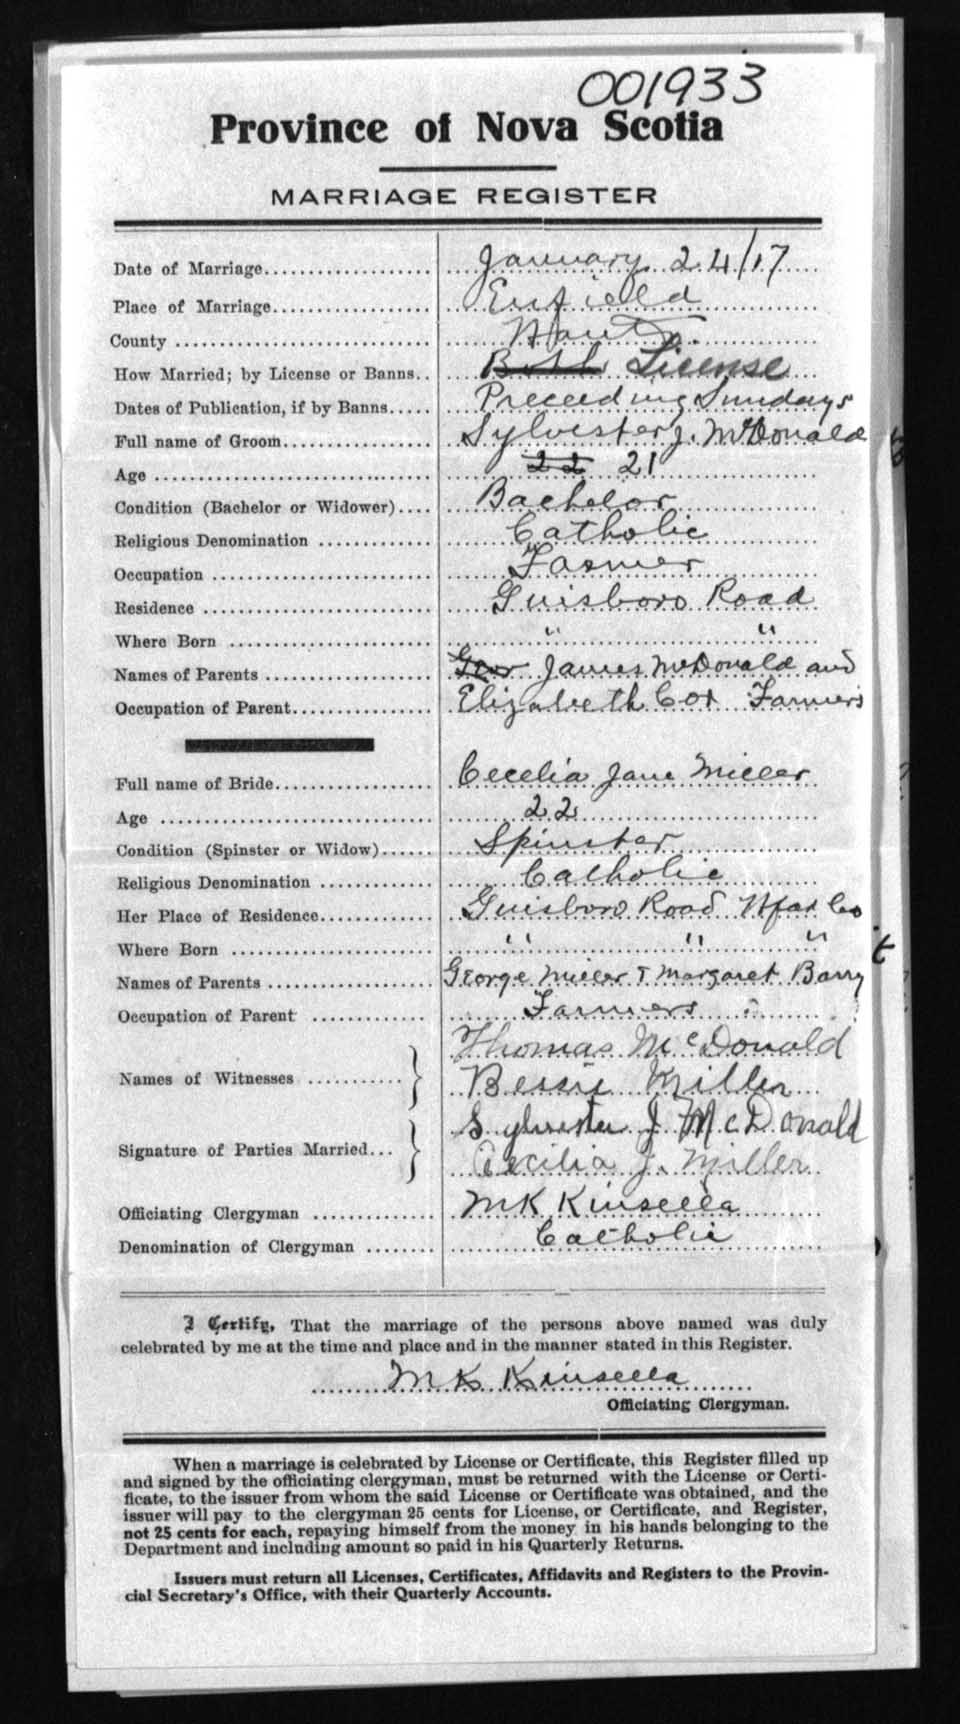 001933
Province of Nova Scotia
MARRIAGE REGISTER
Date of Marriage January 24/17
Place of Marriage Enfield
County Hants
How Married; by License or Banns.. Both License
Dates of Publication, if by Banns Preceeding Sundays
Full name of Groom Sylvester J. McDonald
Age 22 21
Condition (Bachelor or Widower) Bachelor
Religious Denomination Catholic
Occupation Farmer
Residence Guisboro Road
Where Born " "
Names of Parents Geor James McDonald and
Occupation of Parent Elizabeth Cox Farmers
Full name of Bride Cecelia Jane Miller
Age 22
Condition (Spinster or Widow) Spinster
Religious Denomination Catholic
Her Place of Residence Guisboro Road Hfax Co
Where Born " " "
Names of Parents George Miller & Margaret Barry
Occupation of Parent Farmers
Names of Witnesses Thomas McDonald
Bessie Miller
Signature of Parties Married... Sylvester J McDonald
Cecilia J. Miller
Officiating Clergyman MK Kinsella
Denomination of Clergyman Catholic
I Certify, That the marriage of the persons above named was duly
celebrated by me at the time and place and in the manner stated in this Register.
MK Kinsella
Officiating Clergyman.
When a marriage is celebrated by License or Certificate, this Register filled up
and signed by the officiating clergyman, must be returned with the License or Certi-
ficate, to the issuer from whom the said License or Certificate was obtained, and the
issuer will pay to the clergyman 25 cents for License, or Certificate, and Register,
not 25 cents for each, repaying himself from the money in his hands belonging to the
Department and including amount so paid in his Quarterly Returns.
Issuers must return all Licenses, Certificates, Affidavits and Registers to the Provin-
cial Secretary's Office, with their Quarterly Accounts.